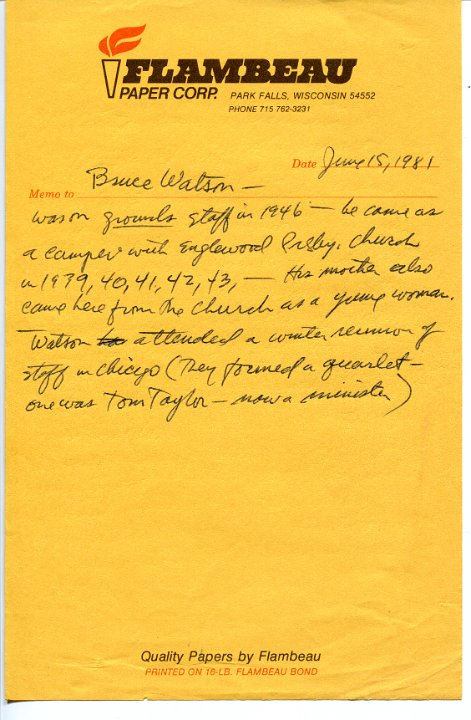 FLAMBEAU
PAPER CORP. PARK FALLS, WISCONSIN 54552
PHONE 715 762-3231
Date June 15, 1981
Memo to Bruce Watson —
was on grounds staff in 1946 — he came as
a camper with Englewood Presby. Church
in 1939, 40, 41, 42, 43, — His mother also
came here from the church as a young woman.
Watson attended a winter reunion of
staff in Chicago (They formed a quartet —
one was Tom Taylor — now a minister)
Quality Papers by Flambeau
PRINTED ON 16-LB. FLAMBEAU BOND